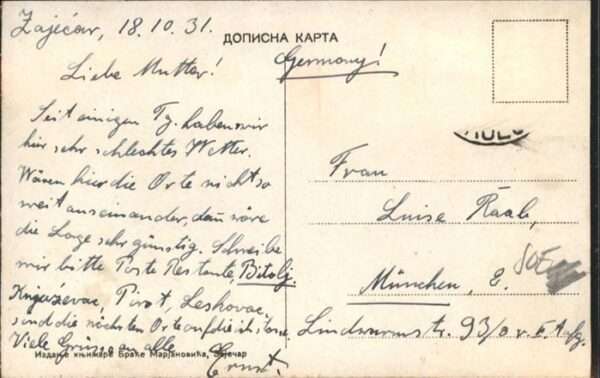 Zaječar, 18.10.31.
ДОПИСНА КАРТА
Germany!
Liebe Mutter!
Seit einigen Tg. haben wir
hier sehr schlechtes Wetter.
Wären hier die Orte nicht so
weit auseinander, dann wäre
die Lage sehr günstig. Schreibe
mir bitte Poste Restante, Bitolj.
Knjaževac, Pirot, Leskovac,
sind die nächsten Orte auf die ich
Viele Grüsse an alle
Ernst.
Издање књижаре Браће Марјановића, Зајечар
Frau
Luise Raab,
München, 2.
Lindwurmstr. 93/0 v. II. Aufg.